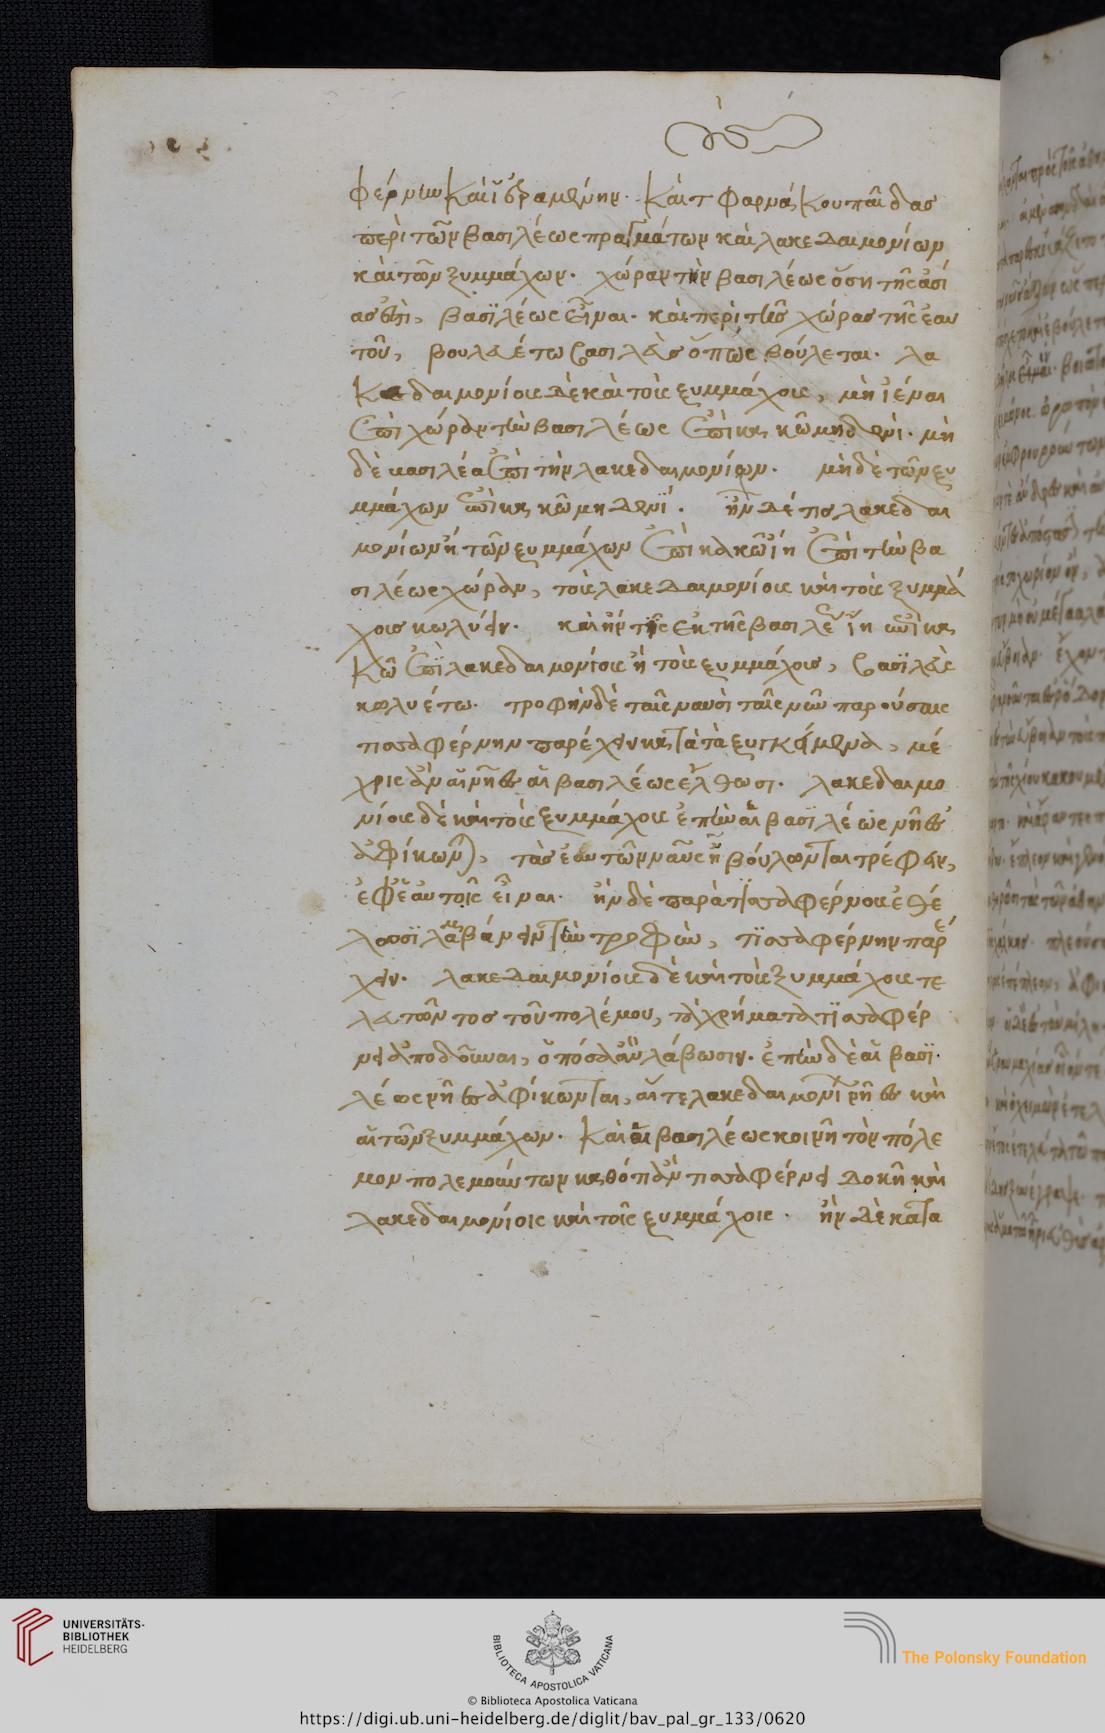 φέρνην καὶ ἱεραμένην. καὶ τ φαρνάκου παῖδας
περὶ τῶν βασιλέως πραγμάτων καὶ λακεδαιμονίων
καὶ τῶν ξυμμάχων. χώραν τὴν βασιλέως ὅση τῆς ἀσί
ας ἐστὶ, βασιλέως εἶναι. καὶ περὶ τῆς χώρας τῆς ἑαυ
τοῦ, βουλευέτω βασιλεὺς ὅπως βούλεται. λα
κεδαιμονίους δὲ καὶ τοὺς ξυμμάχους, μὴ ἰέναι
ἐπὶ χώραν τὴν βασιλέως ἐπὶ κακῶ μηδενί. μη
δὲ βασιλέα ἐπὶ τὴν λακεδαιμονίων. μηδὲ τῶν ξυ
μμάχων ἐπὶ κακῶ μηδενί. ἢν δέ τις λακεδαι
μονίων ἢ τῶν ξυμμάχων ἐπὶ κακῶ ἴη ἐπὶ τὴν βα
σιλέως χώραν, τοὺς λακεδαιμονίους καὶ τοὺς ξυμμά
χους κωλύειν. καὶ ἤν τις ἐκ τῆς βασιλέως ἴη ἐπὶ κα
κῶ ἐπὶ λακεδαιμονίους ἢ τοὺς ξυμμάχους, βασιλεὺς
κωλυέτω. τροφὴν δὲ ταῖς ναυσὶ ταῖς νῦν παρούσαις
τισσαφέρνην παρέχειν κατὰ τὰ ξυγκείμενα, μέ
χρις ἂν αἱ νῆες αἱ βασιλέως ἔλθωσι. λακεδαιμο
νίους δὲ καὶ τοὺς ξυμμάχους ἐπὴν αἱ βασιλέως νῆες
ἀφίκωνται, τὰς ἑαυτῶν ναῦς ἢν βούλωνται τρέφειν,
ἐφ' ἑαυτοῖς εἶναι. ἢν δὲ παρὰ τισσαφέρνους ἐθέ
λωσι λαμβάνειν τὴν τροφὴν, τισσαφέρνην παρέ
χειν. λακεδαιμονίους δὲ καὶ τοὺς ξυμμάχους τε
λευτῶντος τοῦ πολέμου, τὰ χρήματα τισσαφέρ
νει ἀποδοῦναι, ὁπόσα ἂν λάβωσιν. ἐπὴν δὲ αἱ βασι
λέως νῆες ἀφίκωνται, αἵ τε λακεδαιμονίων νῆες καὶ
αἱ τῶν ξυμμάχων. καὶ αἱ βασιλέως κοινῆ τὸν πόλε
μον πολεμούντων καθ' ὅτι ἂν τισσαφέρνει δοκῆ καὶ
λακεδαιμονίοις καὶ τοῖς ξυμμάχοις. ἢν δὲ κατα
UNIVERSITÄTS-
BIBLIOTHEK
HEIDELBERG
BIBLIOTECA APOSTOLICA VATICANA
The Polonsky Foundation
© Biblioteca Apostolica Vaticana
https://digi.ub.uni-heidelberg.de/diglit/bav_pal_gr_133/0620